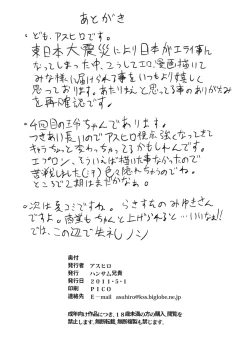 あとがき
・ども、アスヒロです。
東日本大震災により日本がエライ事に
なってしまった中、こうしてエロ漫画描いて
みな様に届けられる事をいつもより嬉しく
思っております。あたりまえと思ってる事のありがたみ
を再確認です。
・4回目の ちゃんであります。
つきあい長いのでアスヒロ仕様 強くなってきて
キャラちょっと変わっちゃってるかもしれんです。
エプロン、そういえば描いた事なかったので
苦戦しました(汗)色々隠れちゃうのでね。
ところで2期はまだかなぁ。
・次は夏コミですね。らきすたのみゆきさん
ですよ。商業もちゃんと上げられると…いいなぁ!!
では、この辺で失礼ノシ
奥付
発行者 アスヒロ
発行 ハンサム兄貴
発行日 2011・5・1
印刷 PICO
連絡先 E-mail asuhiro@kss.biglobe.ne.jp
成年向け作品につき、18歳未満の方の購入、閲覧を
禁止します。無断転載、無断複製も禁じます。